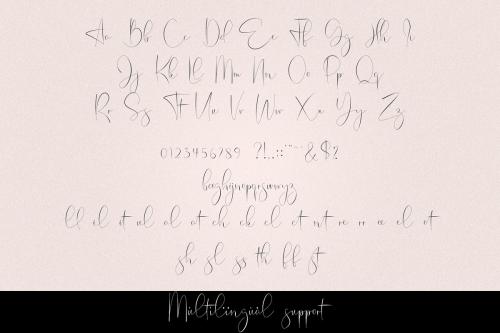 Aa Bb Cc Dd Ee Ff Gg Hh Ii
Jj Kk Ll Mm Nn Oo Pp Qq
Rr Ss Tt Uu Vv Ww Xx Yy Zz
0123456789 ?!..::"'~-&$?
ll il it ul al at ch ck cl ct nt re rr ee el et
sh sl ss th ff st
Multilingual support